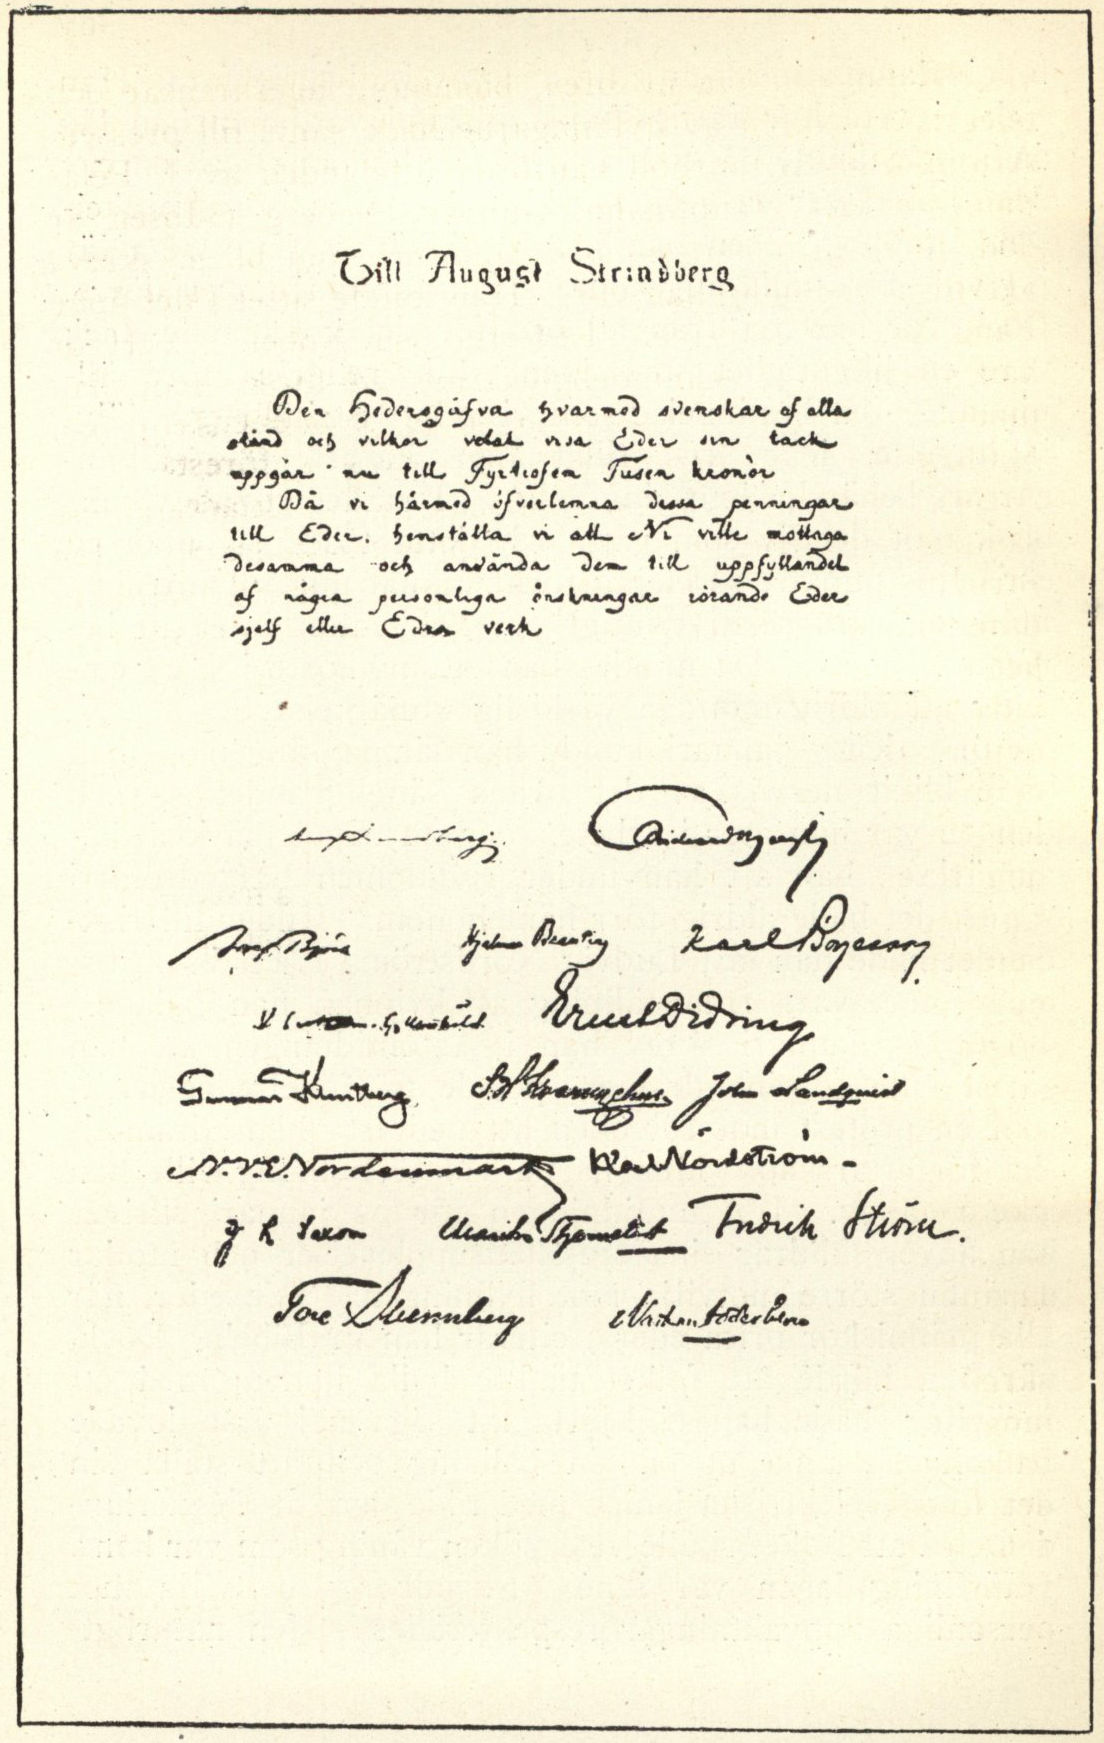 Till August Strindberg
Den Hedersgåfva hvarmed svenskar af alla
stånd och vilkor velat visa Eder sin tack
uppgår nu till Fyrtiofem Tusen kronor
Då vi härmed öfverlemna dessa penningar
till Eder, hemställa vi att Ni ville mottaga
desamma och använda dem till uppfyllandet
af några personliga önskningar rörande Eder
sjelf eller Edra verk
Björck
Hjalmar Branting Karl Börjesson
Ernst Didring
Gunnar Klintberg John Landquist
N.V.E. Nordenmark Karl Nordström
J L Saxon Fredrik Ström.
Tore Svennberg Nathan Söderblom